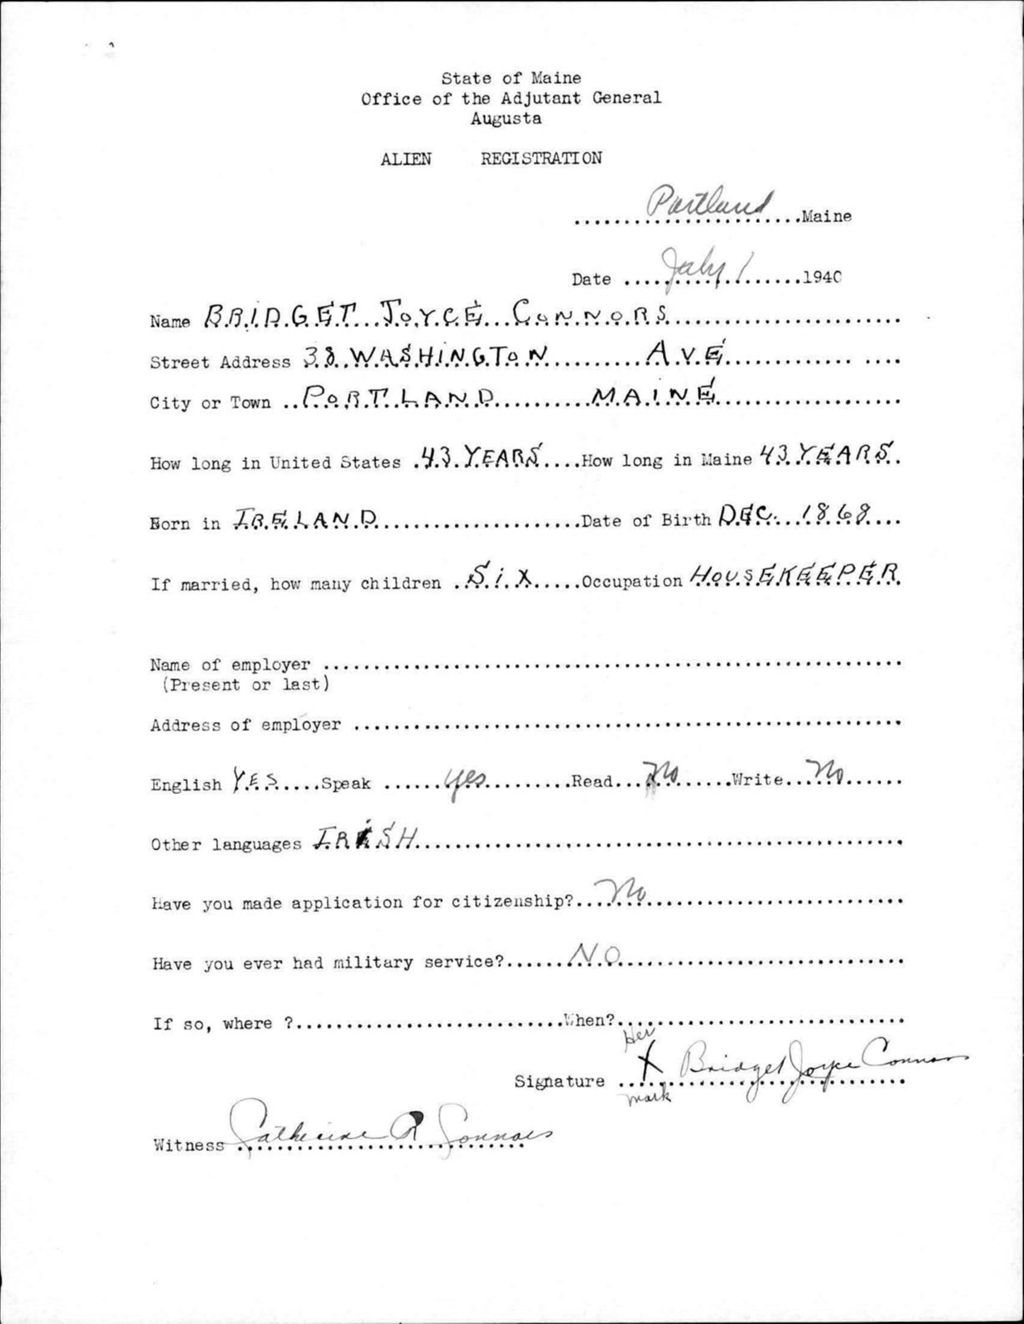 State of Maine
Office of the Adjutant General
Augusta
ALIEN REGISTRATION
Portland Maine
Date July 1 1940
Name BRIDGET JOYCE CONNORS
Street Address 38 WASHINGTON AVE
City or Town PORTLAND MAINE
How long in United States 43 YEARS How long in Maine 43 YEARS
Born in IRELAND Date of Birth DEC. 1868
If married, how many children SiX Occupation HOUSEKEEPER
Name of employer
(Present or last)
Address of employer
English YES Speak yes Read No Write No
Other languages IRISH
Have you made application for citizenship? No
Have you ever had military service? NO
If so, where ? When?
Her
Signature X Bridget Joyce Connors
mark
Witness Catherine R Connors